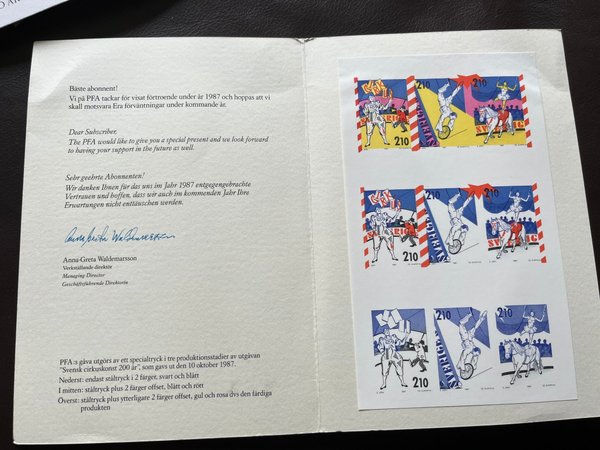 Bäste abonnent!
Vi på PFA tackar för visat förtroende under år 1987 och hoppas att vi
skall motsvara Era förväntningar under kommande år.
Dear Subscriber,
The PFA would like to give you a special present and we look forward
to having your support in the future as well.
Sehr geehrte Abonnenten!
Wir danken Ihnen für das uns im Jahr 1987 entgegengebrachte
Vertrauen und hoffen, dass wir auch im kommenden Jahr Ihre
Erwartungen nicht enttäuschen werden.
Anna-Greta Waldemarsson
Anna-Greta Waldemarsson
Verkställande direktör
Managing Director
Geschäftsführende Direktorin
PFA:s gåva utgörs av ett specialtryck i tre produktionsstadier av utgåvan
"Svensk cirkuskonst 200 år", som gavs ut den 10 oktober 1987.
Nederst: endast ståltryck i 2 färger, svart och blått
I mitten: ståltryck plus 2 färger offset, blått och rött
Överst: ståltryck plus ytterligare 2 färger offset, gul och rosa dvs den färdiga
produkten
210
SVERIGE
210
210
210
SVERIGE
210
210
210
SVERIGE
210
210